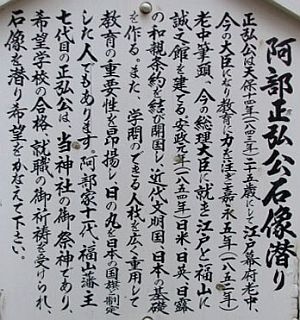 阿部正弘公石像潜り
正弘公は天保十四年(一八四三)二十五歳にして江戸幕府老中、
今の大臣になり教育に力をそそぎ嘉永五年(一八五二)
老中筆頭、今の総理大臣に就き江戸と福山に
誠之館を建てる安政元年(一八五四)日米・日英・日露
の和親条約を結び開国し、近代文明国・日本の基礎
を作る。また、学問のできる人材を広く重用して
教育の重要性を昂揚し日の丸を日本の国旗と制定
した人でもあります。阿部家十一代、福山藩主
七代目の正弘公は、当神社の御祭神であり、
希望学校の合格、就職の御祈祷を受けられ、
石像を潜り希望をかなえて下さい。